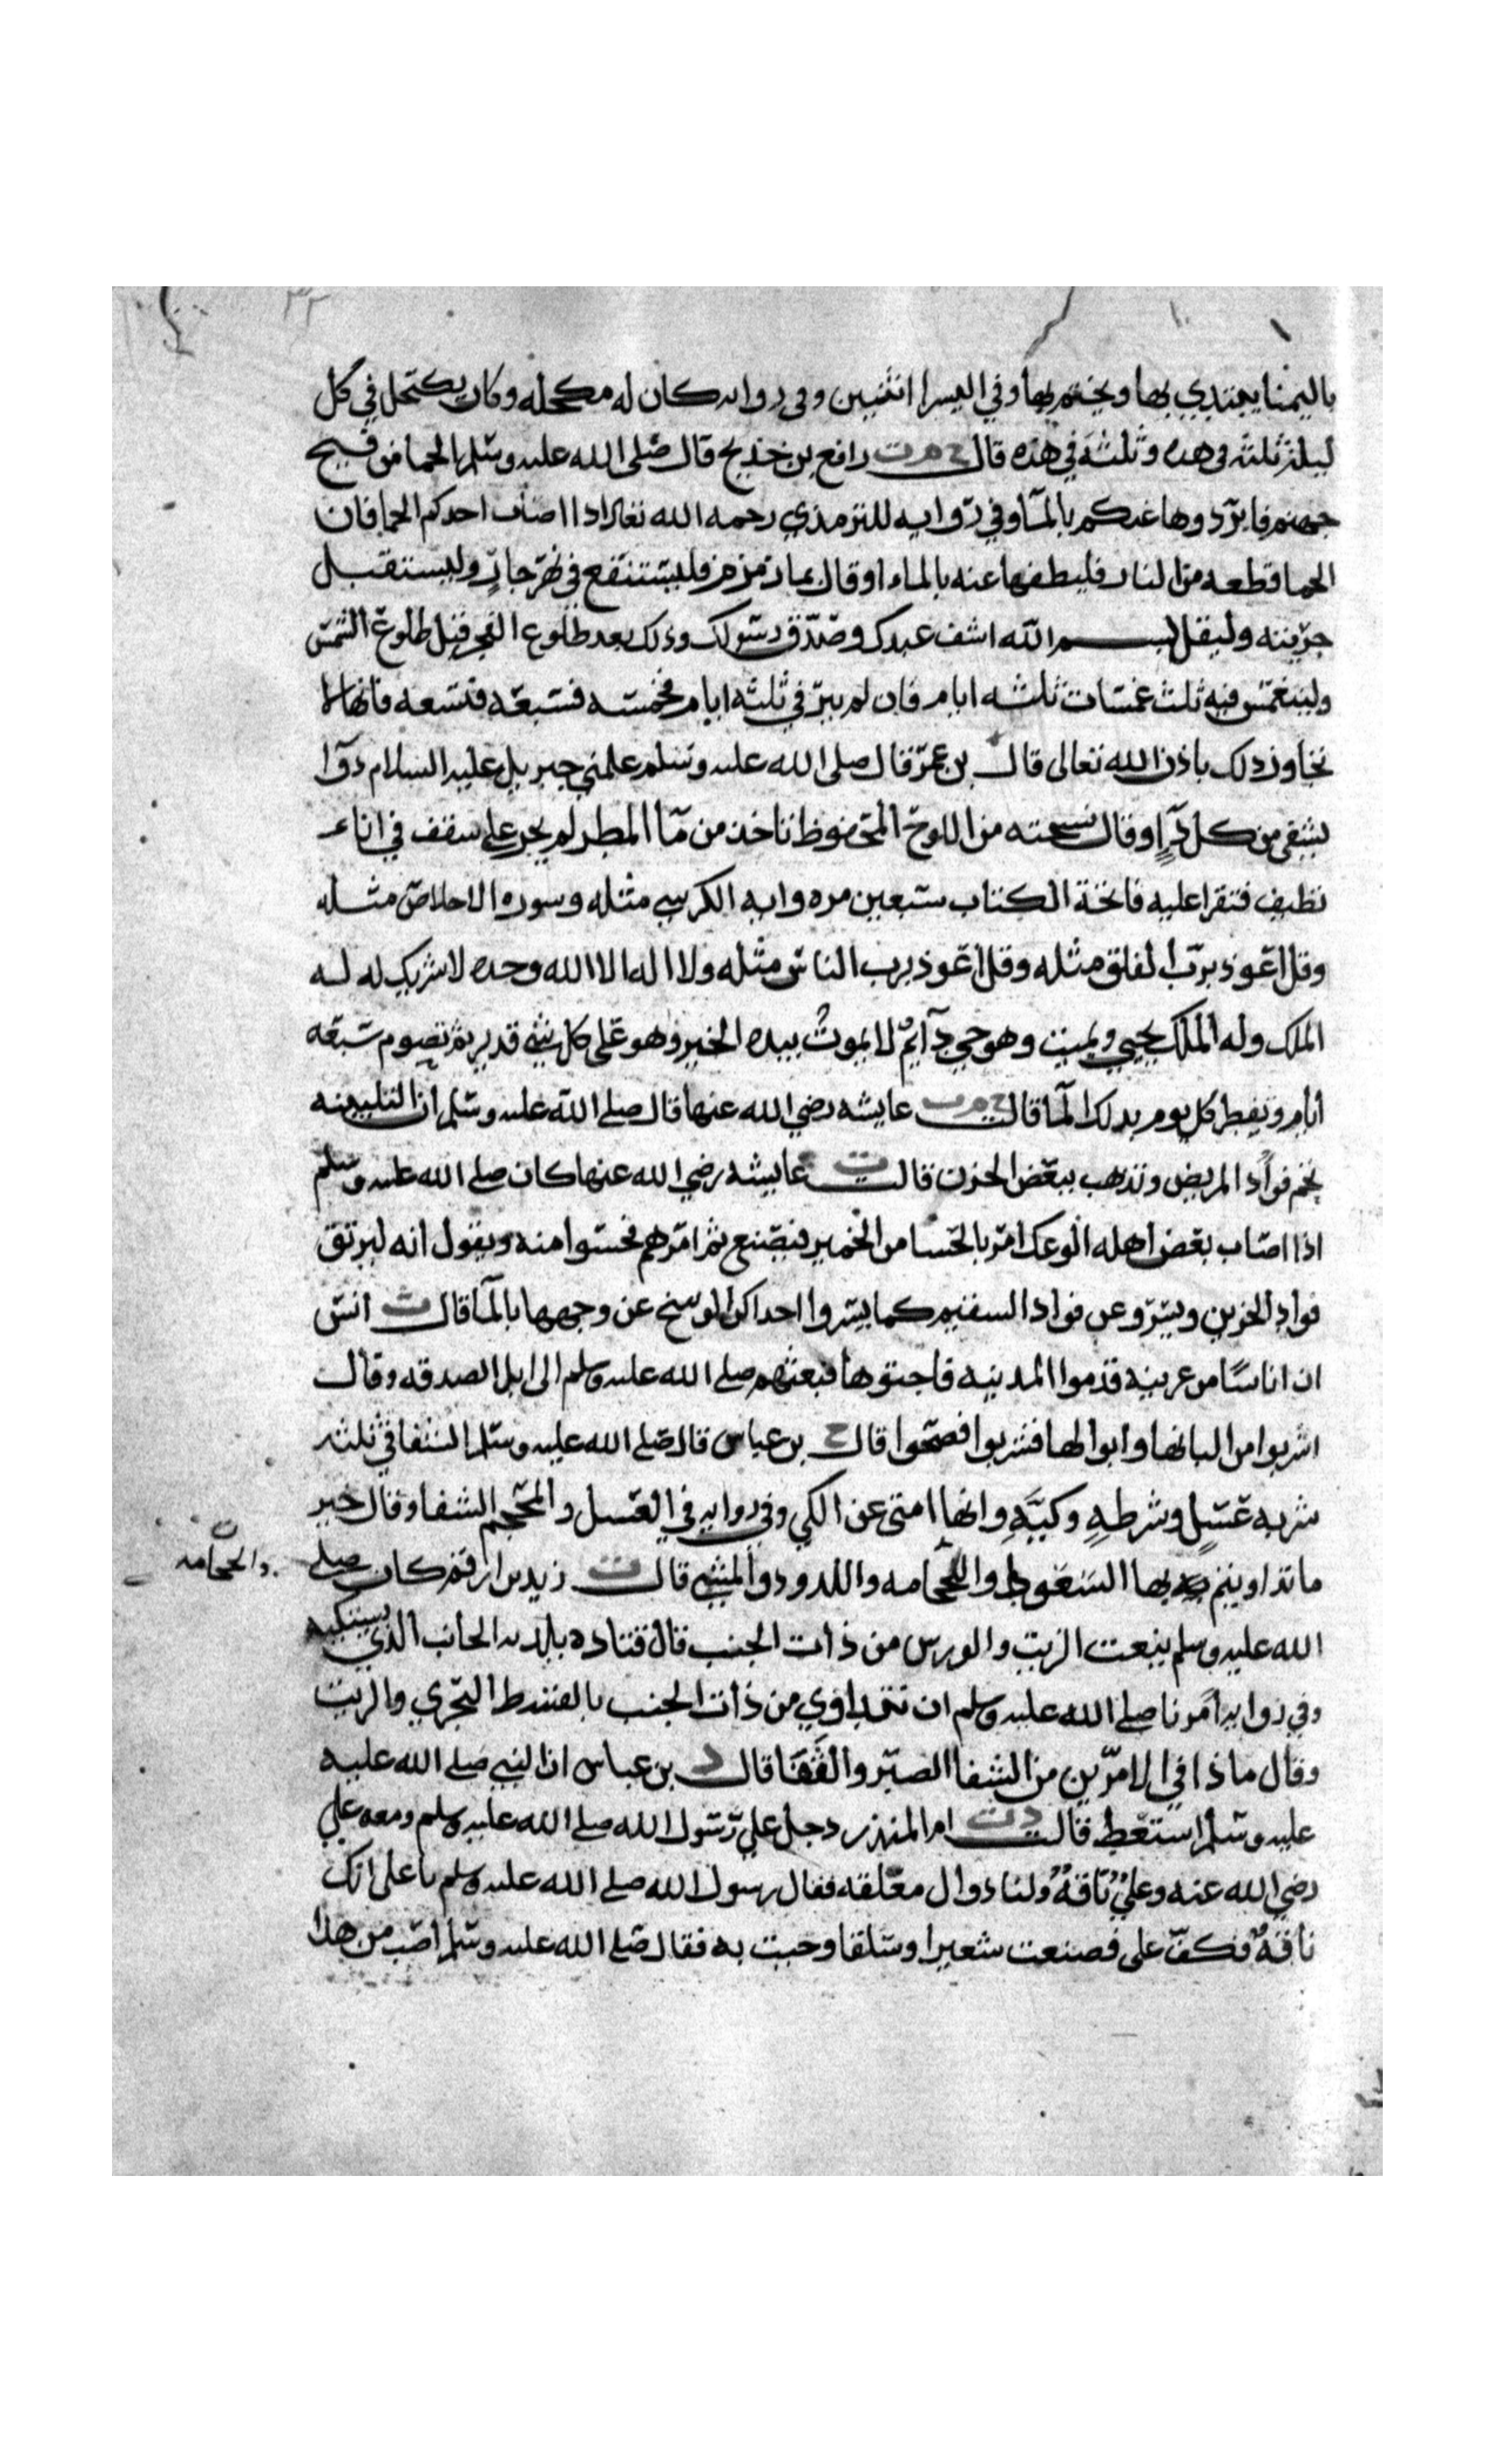 ٣٢
باليمنا يبتدي بها ويختم بها وفي اليسرا اثنتين وفي روايه كان له مكحله وكان يكتحل في كل
ليلة ثلثه في هذه وثلثه في هذه قال ح م ت رافع بن خديج قال صلى الله عليه وسلم الحما من فيح
جهنم فابردوها عنكم بالمآ وفي روايه للترمذي رحمه الله تعالى اذا اصاب احدكم الحما فان
الحما قطعه من النار فليطفها عنه بالماء او قال بماء زمزم فليستنقع في نهر جارٍ وليستقبل
جريته وليقل بسم الله اشف عبدك وصدق رسولك وذلك بعد طلوع الفجر قبل طلوع الشمس
ولينغمس فيه ثلث غمسات ثلثه ايام فان لم يبر في ثلثه ايام فخمسه فسبعه فتسعه فانها لا
تجاوز ذلك باذن الله تعالى قال بن عمر قال صلى الله عليه وسلم علمني جبريل عليه السلام دوآ
يشفي من كل دآءٍ وقال نسخته من اللوح المحفوظ ناخذ من مآ المطر لم يجر على سقف في اناء
نظيف فتقرا عليه فاتحة الكتاب سبعين مره وايه الكرسي مثله وسوره الاخلاص مثله
وقل اعوذ برب الفلق مثله وقل اعوذ برب الناس مثله ولا اله الا الله وحده لا شريك له له
الملك وله الملك يحيي ويميت وهو حي دآيمٌ لا يموتُ بيده الخير وهو على كل شي قدير ثم تصوم سبعه
ايام وتفطر كل يوم بذلك المآ قالت ح م ت عايشه رضي الله عنها قال صلى الله عليه وسلم ان التلبينه
تجم فواد المريض وتذهب ببعض الحزن قالت ت عايشه رضي الله عنها كان صلى الله عليه وسلم
اذا اصاب بعض اهله الوعك امر بالحسا من الخمير فيصنع ثم امرهم فحسوا منه ويقول انه ليرتق
فواد الحزين ويسرو عن فواد السقيم كما يسروا احداكن الوسخ عن وجهها بالمآ قال ت انس
ان اناسًا من عرينه قدموا المدينه فاجتووها فبعثهم صلى الله عليه وسلم الى ابل الصدقه وقال
اشربوا من البانها وابوالها فشربوا فصحوا قال ح بن عباس قال صلى الله عليه وسلم الشفا في ثلثه
شربه عسلٍ وشرطهٍ وكيَّهٍ وانها امتي عن الكي وفي روايه في العسل والمحجم الشفا وقال خير
ما تداويتم به بها السعوط والحجامه واللدود والمشي قال ت زيد بن ارقم كان صلى
والحجامه
الله عليه وسلم ينعت الزيت والورس من ذات الجنب قال قتاده يلد به الجانب الذي يشتكيه
وفي روايه امرنا صلى الله عليه وسلم ان نتداوي من ذات الجنب بالقسط البحري والزيت
وقال ماذا في الامرّين من الشفا الصبر والثفا قال د بن عباس ان النبي صلى الله عليه
عليه وسلم استعط قالت د ت ام المنذر دخل علي رسول الله صلى الله عليه وسلم ومعه علي
رضي الله عنه وعليٌ ناقهٌ ولنا دوال معلقه فقال رسول الله صلى الله عليه وسلم يا علي انك
ناقهٌ فكفّ علي فصنعت شعيرا وسلقا وجيت به فقال صلى الله عليه وسلم اصب من هذا